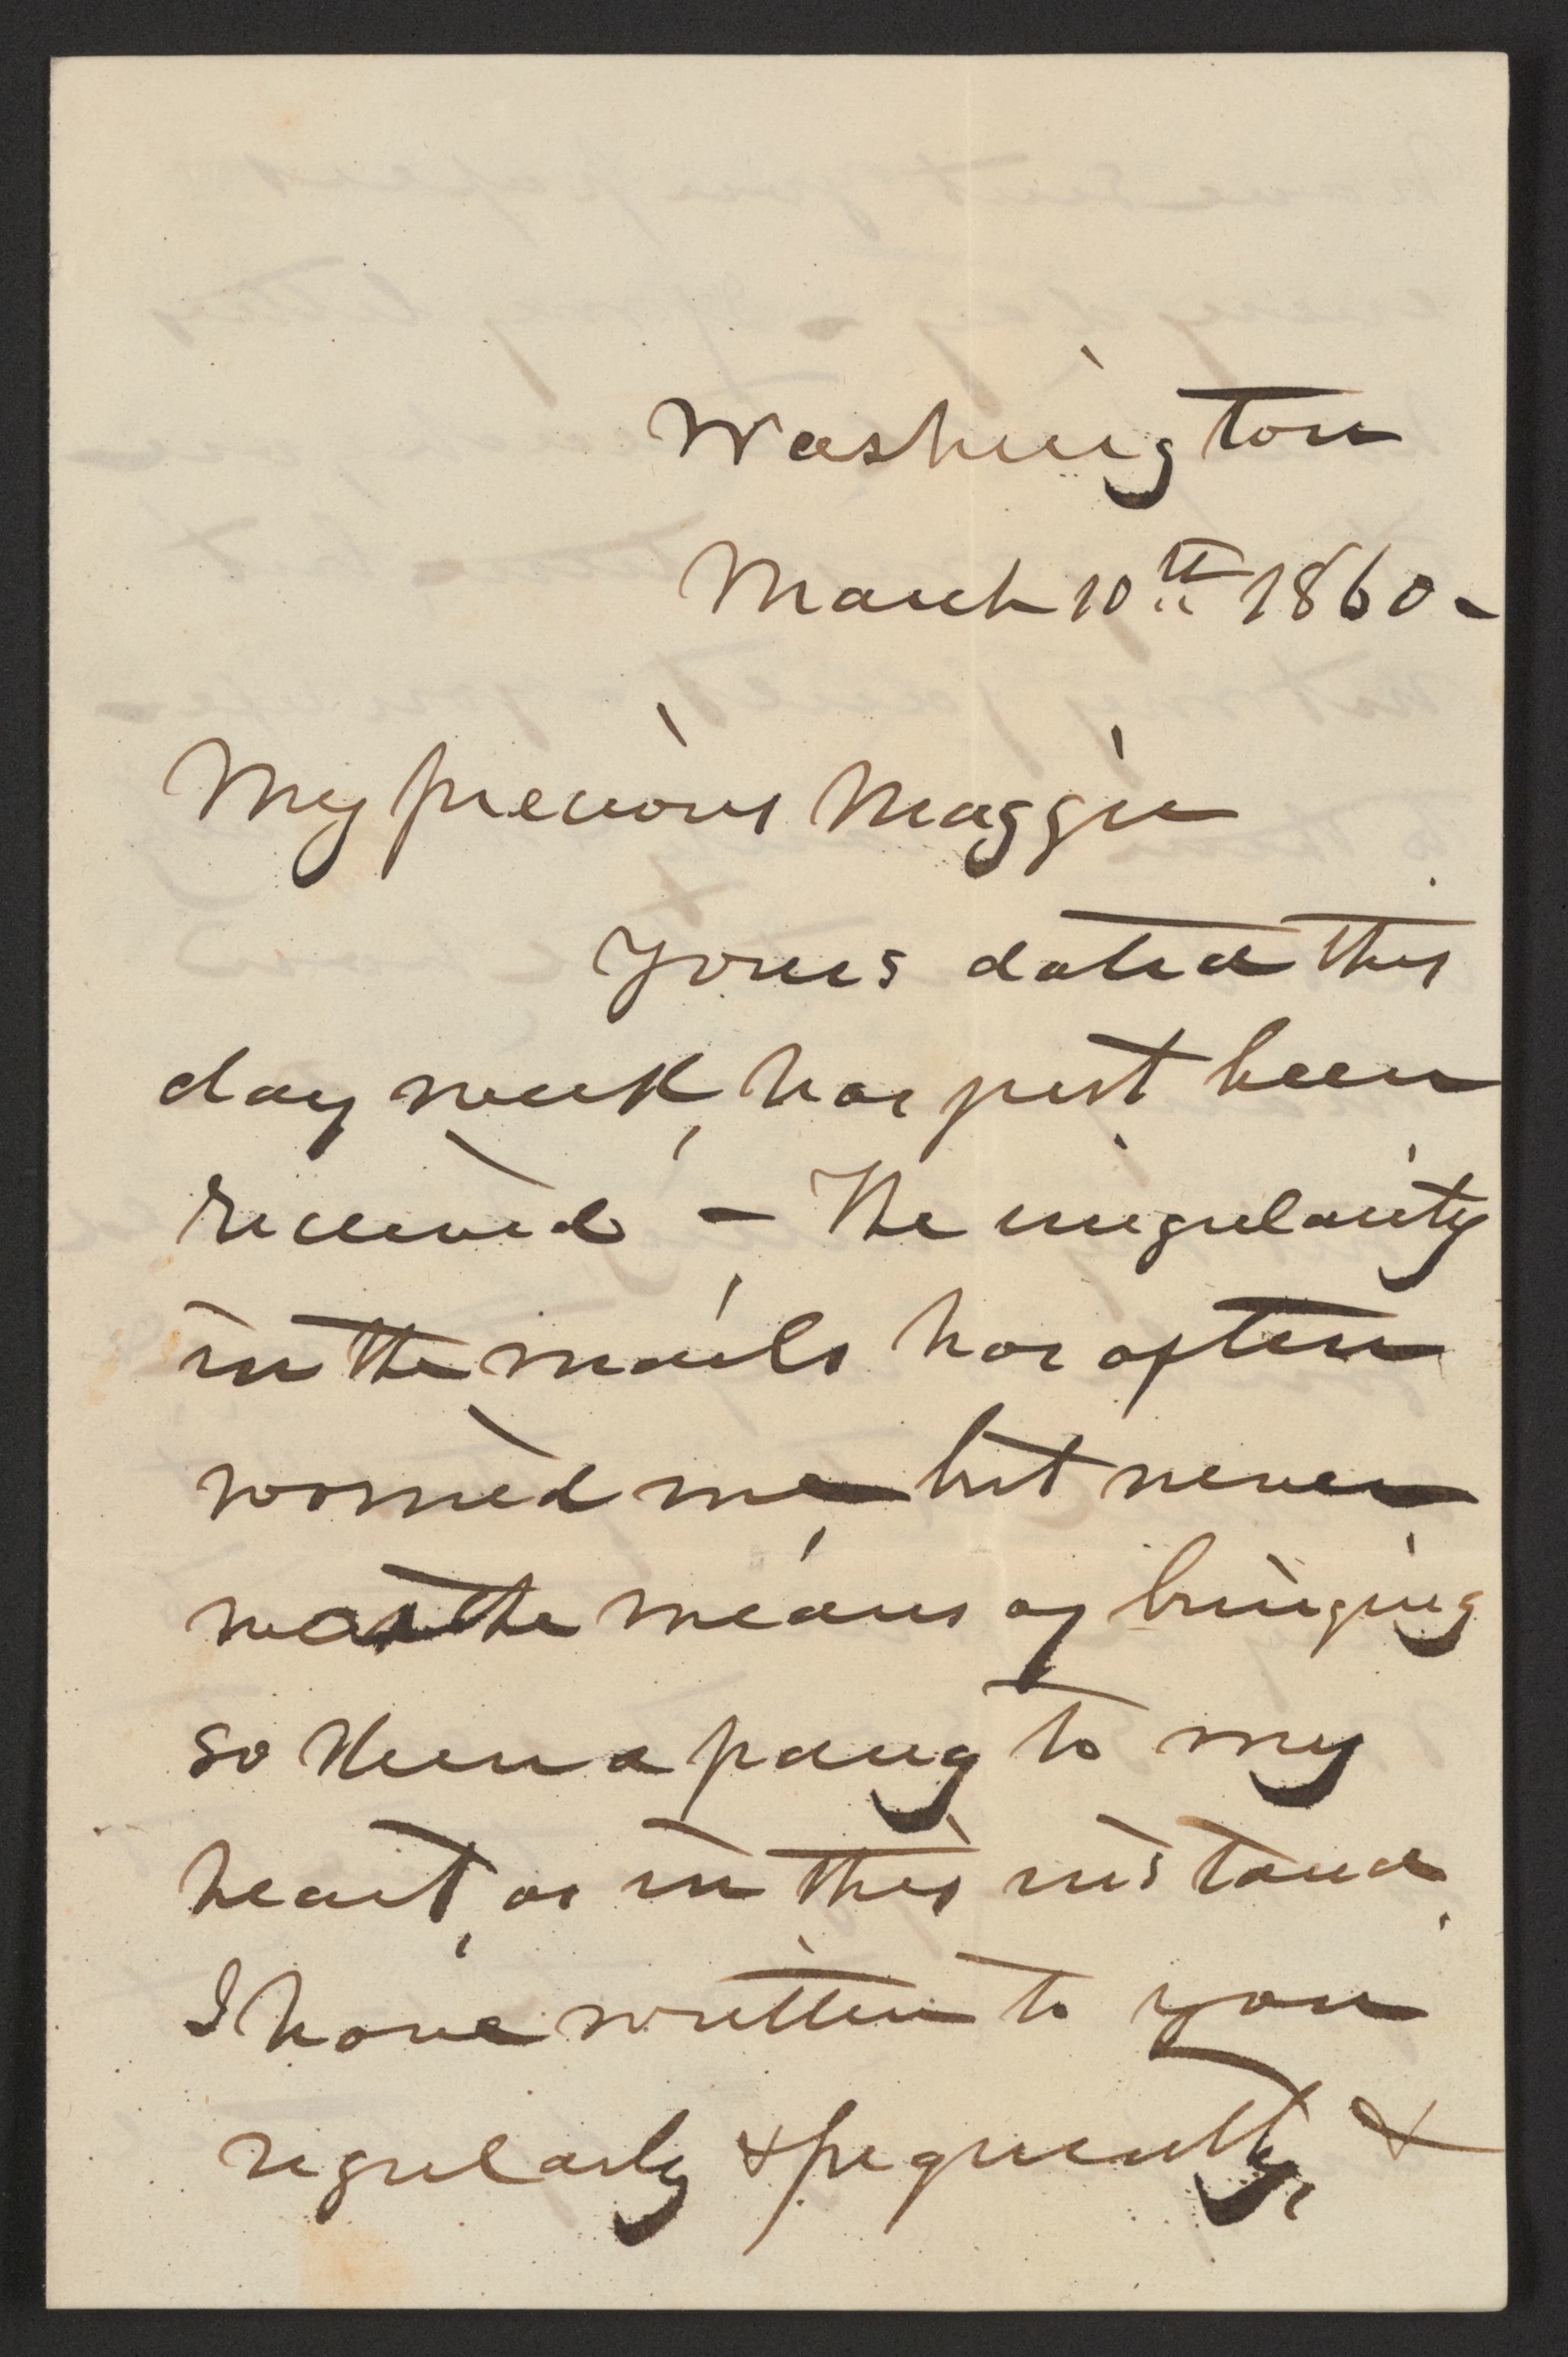 Washington
March 10th 1860-
My precious Maggie
Yours dated this
day week, has just been
received - The irregularity
in the mails has often
worried me but never
was the means of bringing
so keen a pang to my
heart, as in this instance.
I have written to you
regularly & frequently, &